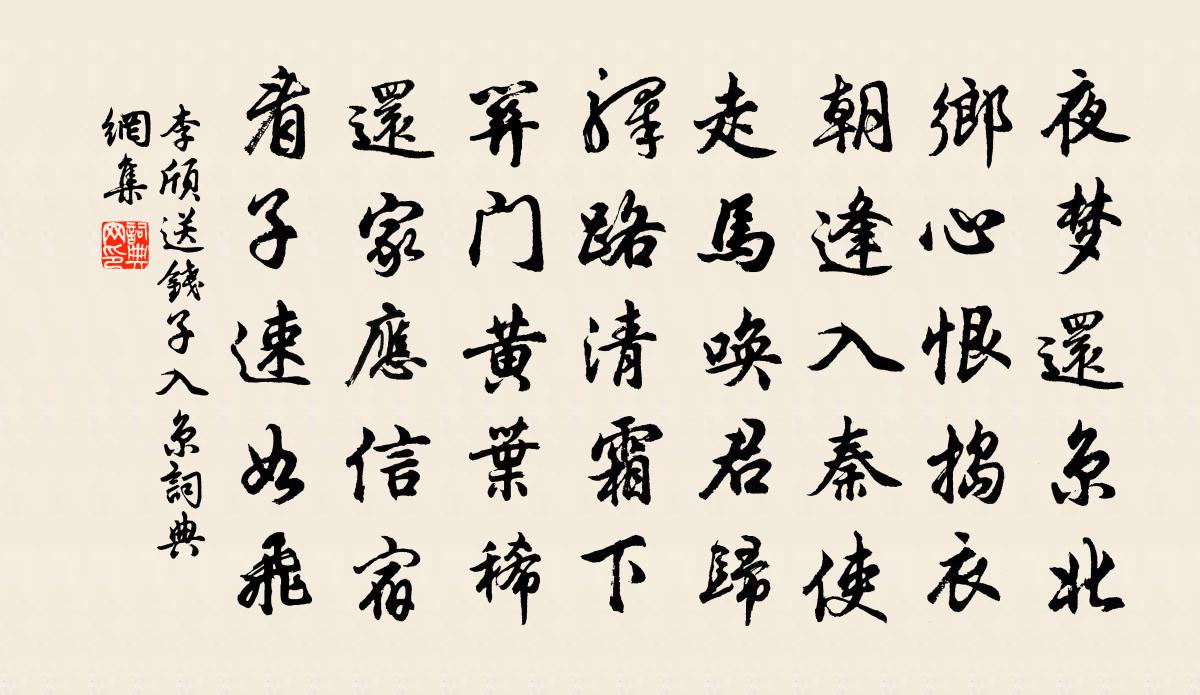 夜梦還京北
鄉心恨搗衣
朝逢入秦使
走馬喚君歸
驛路清霜下
關門黄葉稀
還家應信宿
看子速如飛
李頎送錢子入京詞典
網集
詞典
网印